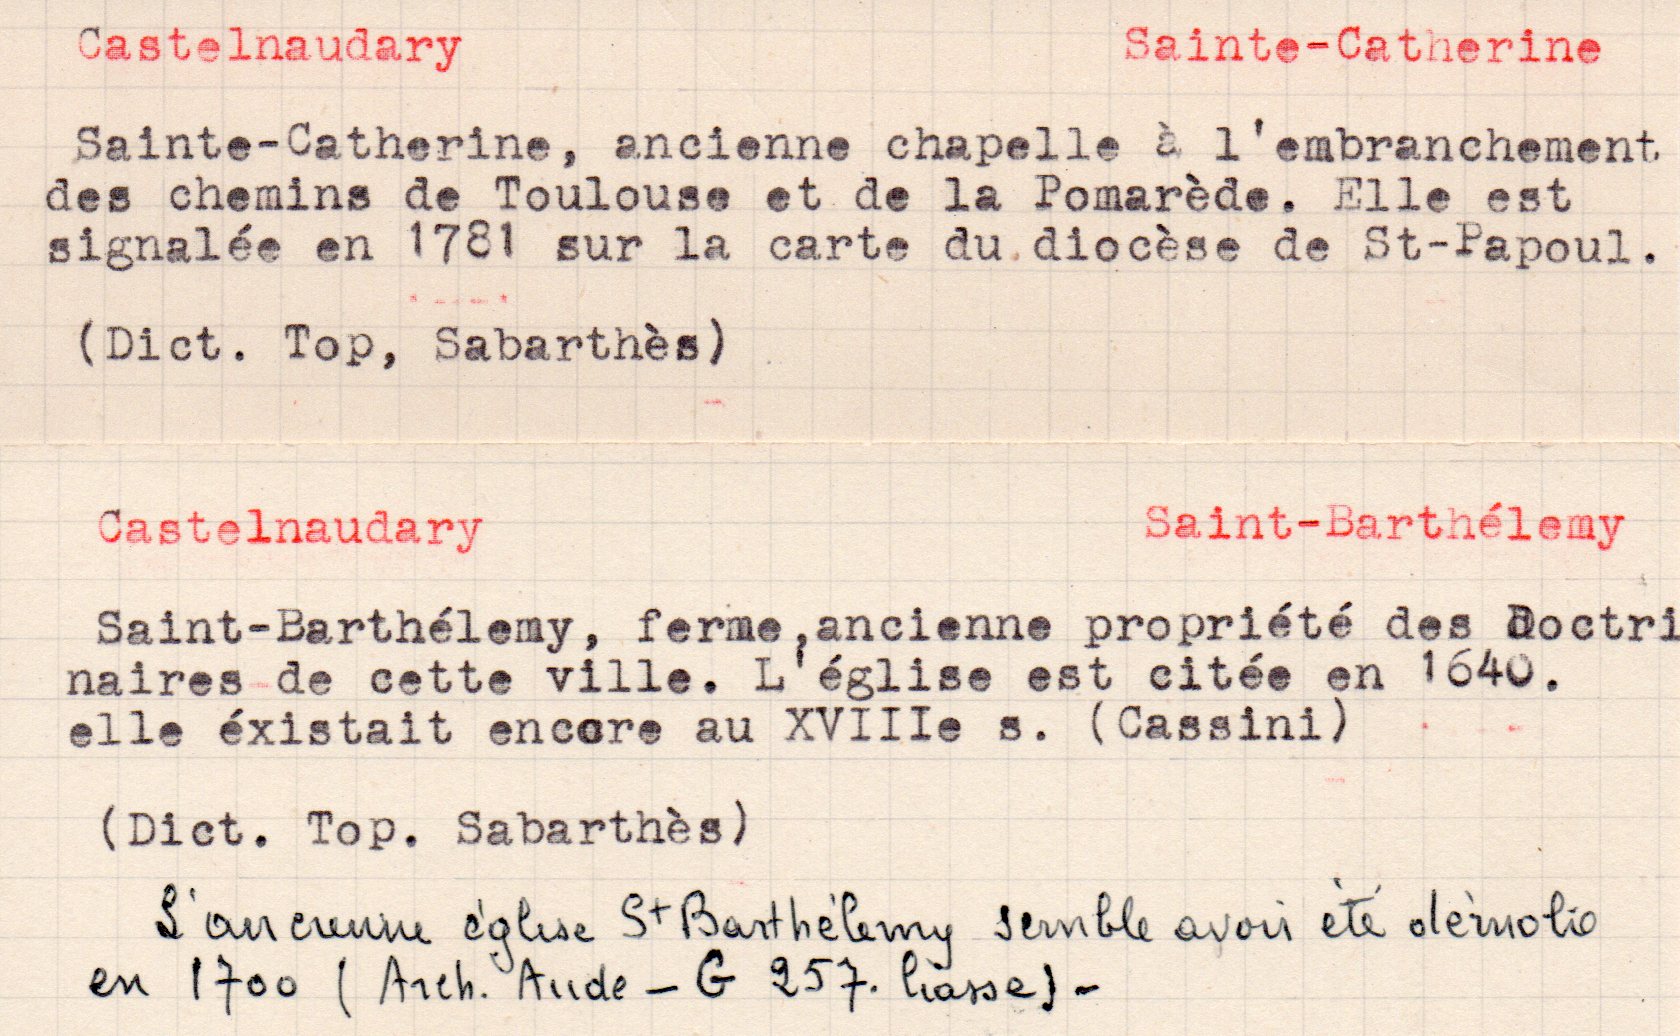 Castelnaudary Sainte-Catherine
Sainte-Catherine, ancienne chapelle à l'embranchement
des chemins de Toulouse et de la Pomarède. Elle est
signalée en 1781 sur la carte du diocèse de St-Papoul.
(Dict. Top, Sabarthès)
Castelnaudary Saint-Barthélemy
Saint-Barthélemy, ferme,ancienne propriété des Doctri
naires de cette ville. L'église est citée en 1640.
elle éxistait encore au XVIIIe s. (Cassini)
(Dict. Top. Sabarthès)
L'ancienne église St Barthélemy semble avoir été démolie
en 1700 (Arch. Aude - G 257. liasse) -